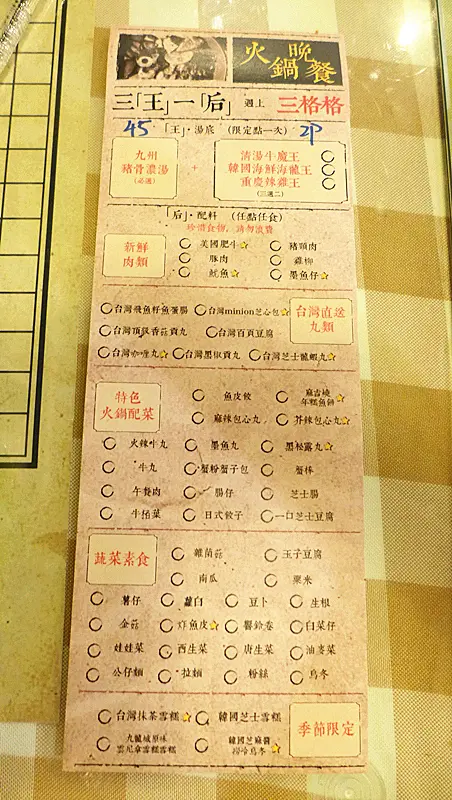 火鍋 晚餐
三「王」一「后」 遇上 三格格
45 「王」‧湯底 (限定點一次) 2P
九州
豬骨濃湯
(必選)
+
清湯牛魔王
韓國海鮮海龍王
重慶辣雞王
(三選二)
「后」‧配料 (任點任食)
珍惜食物，請勿浪費
新鮮
肉類
美國肥牛 豬頸肉
豚肉 雞柳
魷魚 墨魚仔
台灣直送
丸類
台灣飛魚籽魚蛋腸 台灣minion芝心包
台灣頂級香菇貢丸 台灣百頁豆腐
台灣咖喱丸 台灣黑椒貢丸 台灣芝士龍蝦丸
特色
火鍋配菜
魚皮餃 麻吉燒
年糕魚餅
麻辣包心丸 芥辣包心丸
火辣牛丸 墨魚丸 黑松露丸
牛丸 蟹粉蟹子包 蟹棒
午餐肉 腸仔 芝士腸
牛栢葉 日式餃子 一口芝士豆腐
蔬菜素食
雜菌菇 玉子豆腐
南瓜 粟米
薯仔 蘿白 豆卜 生根
金菇 炸魚皮 響鈴卷 白菜仔
娃娃菜 西生菜 唐生菜 油麥菜
公仔麵 拉麵 粉絲 烏冬
季節限定
台灣抹茶雪糕 韓國芝士雪糕
九龍城原味
雲尼拿雪糕雪糕
韓國芝麻醬
撈冷烏冬